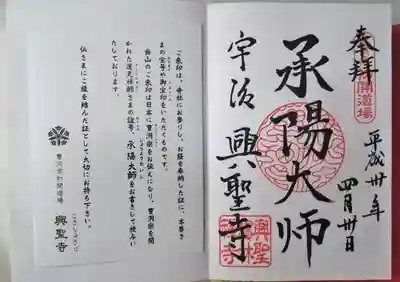 奉拝
開道場
平成卅年
四月卅日
承陽大師
宇治 興聖寺
興聖
ご朱印は、寺社にお参りし、お経を奉納した証に、本尊さ
まの宝号や御宝印をいただくものです。
当山のご朱印は日本に曹洞宗をお伝えになり、曹洞宗を開
かれた道元禅師さまの諡号、承陽大師をお書きして授与い
たしております。
じょうようだいし
仏さまにご縁を結んだ証として大切にお持ち下さい。
曹洞宗初開道場
こうしょうじ
興聖寺